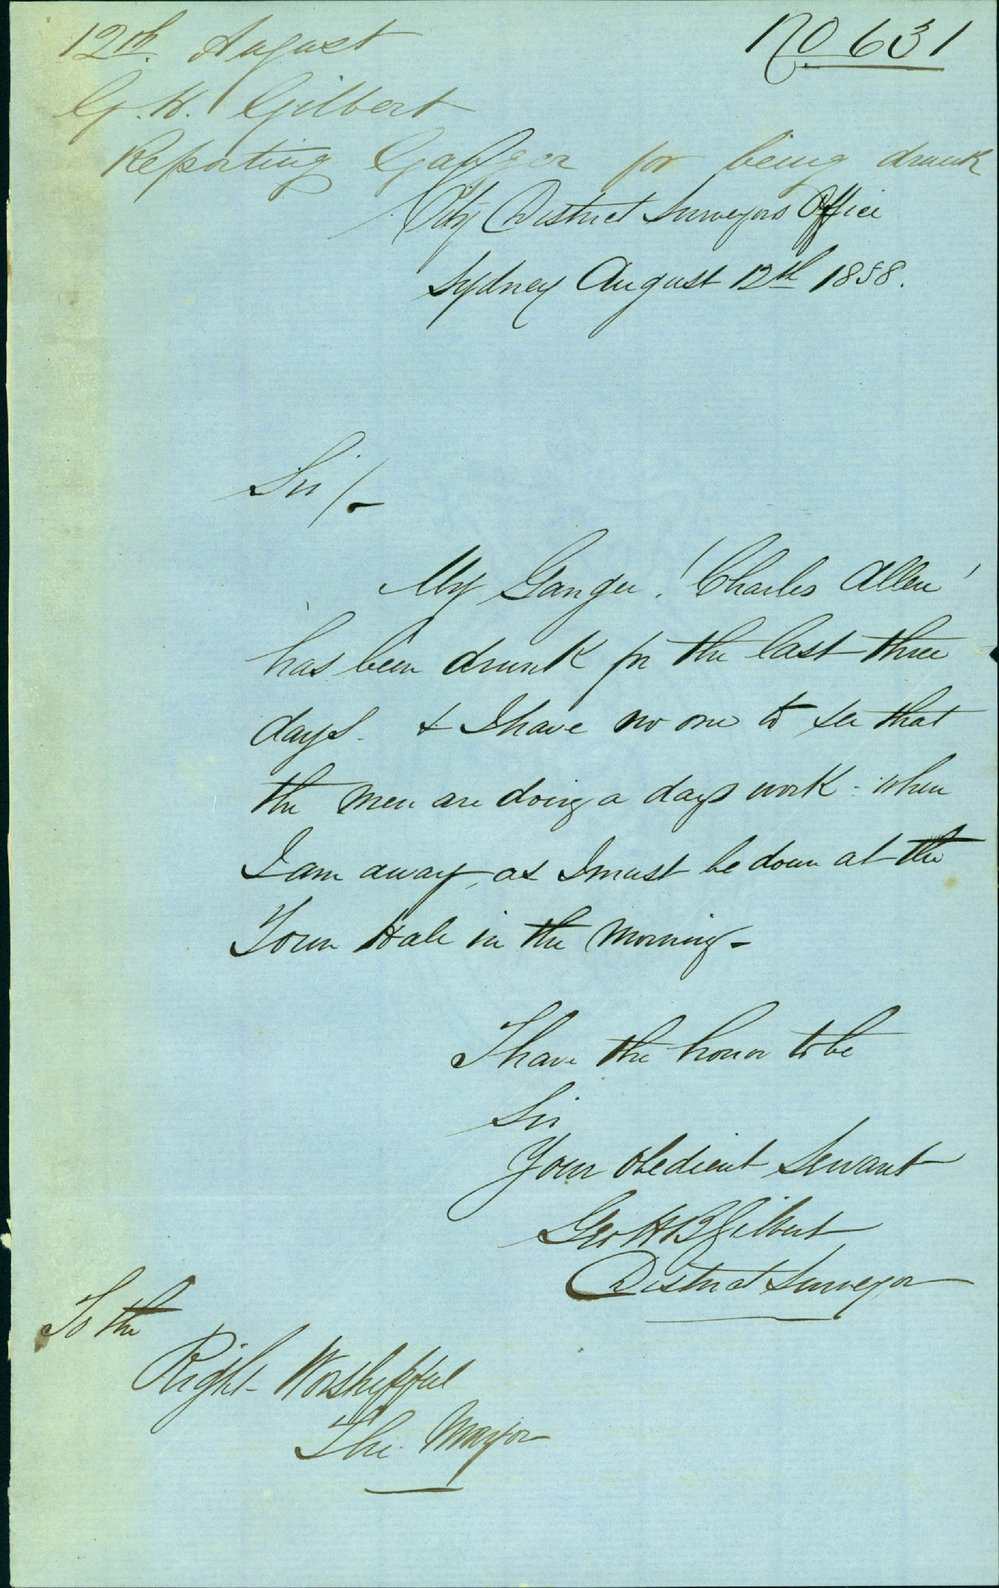 12th. August
No 631
G. H. Gilbert
Reporting Ganger for being drunk
City District Surveyors Office
Sydney August 12th 1858.
Sir/-
My Ganger 'Charles Allen'
has been drunk for the last three
days. & I have no one to see that
the men are doing a days work - when
I am away, as I must be down at the
Town Hall in the morning -
I have the honor to be
Sir
Your obedient Servant
Geo H B Gilbert
District Surveyor
To the
Right Worshipful
The Mayor